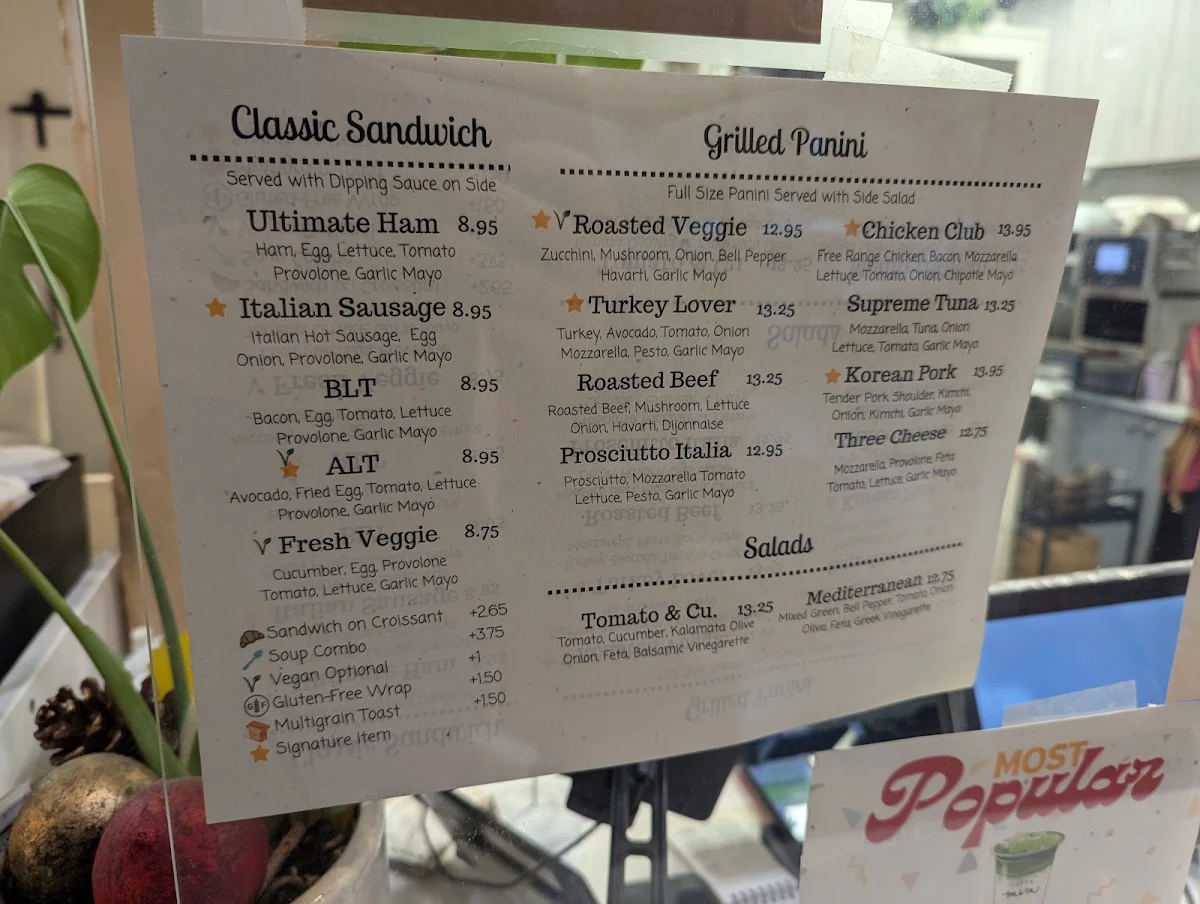 Classic Sandwich
Served with Dipping Sauce on Side
Ultimate Ham 8.95
Ham, Egg, Lettuce, Tomato
Provolone, Garlic Mayo
Italian Sausage 8.95
Italian Hot Sausage, Egg
Onion, Provolone, Garlic Mayo
BLT 8.95
Bacon, Egg, Tomato, Lettuce
Provolone, Garlic Mayo
ALT 8.95
Avocado, Fried Egg, Tomato, Lettuce
Provolone, Garlic Mayo
Fresh Veggie 8.75
Cucumber, Egg, Provolone
Tomato, Lettuce, Garlic Mayo
Sandwich on Croissant +2.65
Soup Combo +3.75
Vegan Optional +1
GF Gluten-Free Wrap +1.50
Multigrain Toast +1.50
Signature Item
Grilled Panini
Full Size Panini Served with Side Salad
Roasted Veggie 12.95
Zucchini, Mushroom, Onion, Bell Pepper
Havarti, Garlic Mayo
Turkey Lover 13.25
Turkey, Avocado, Tomato, Onion
Mozzarella, Pesto, Garlic Mayo
Roasted Beef 13.25
Roasted Beef, Mushroom, Lettuce
Onion, Havarti, Dijonnaise
Prosciutto Italia 12.95
Prosciutto, Mozzarella Tomato
Lettuce, Pesto, Garlic Mayo
Chicken Club 13.95
Free Range Chicken, Bacon, Mozzarella
Lettuce, Tomato, Onion, Chipotle Mayo
Supreme Tuna 13.25
Mozzarella, Tuna, Onion
Lettuce, Tomato, Garlic Mayo
Korean Pork 13.95
Tender Pork Shoulder, Kimchi,
Onion, Kimchi, Garlic Mayo
Three Cheese 12.75
Mozzarella, Provolone, Feta
Tomato, Lettuce, Garlic Mayo
Salads
Tomato & Cu. 13.25
Tomato, Cucumber, Kalamata Olive
Onion, Feta, Balsamic Vinegarette
Mediterranean 12.75
Mixed Green, Bell Pepper, Tomato, Onion
Olive, Feta, Greek Vinegarette
MOST
Popular